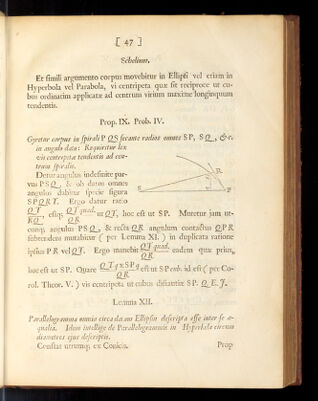 [ 47 ]
Scholium.
Et simili argumento corpus movebitur in Ellipsi vel etiam in
Hyperbola vel Parabola, vi centripeta quæ sit reciproce ut cu-
bus ordinatim applicatæ ad centrum virium maxime longinquum
tendentis.
Prop. IX. Prob. IV.
Gyretur corpus in spirali PQS secante radios omnes SP, SQ, &c.
in angulo dato: Requiritur lex
vis centripetæ tendentis ad cen-
trum spiralis.
Detur angulus indefinite par-
vus PSQ, & ob datos omnes
angulos dabitur specie figura
SPQRT. Ergo datur ratio
QT/RQ, estq; QT quad./QR ut QT, hoc est ut SP. Mutetur jam ut-
cunq; angulus PSQ, & recta QR angulum contactus QPR
subtendens mutabitur (per Lemma XI.) in duplicata ratione
ipsius PR vel QT. Ergo manebit QT quad./QR eadem quæ prius,
hoc est ut SP. Quare QTq. x SPq./QR est ut SP cub. id est (per Co-
rol. Theor. V.) vis centripeta ut cubus distantiæ SP. Q. E. I.
S
R
Q
T
P
Lemma XII.
Parallelogramma omnia circa datam Ellipsin descripta esse inter se æ-
qualia. Idem intellige de Parallelogrammis in Hyperbola circum
diametros ejus descriptis.
Constat utrumq; ex Conicis.
Prop